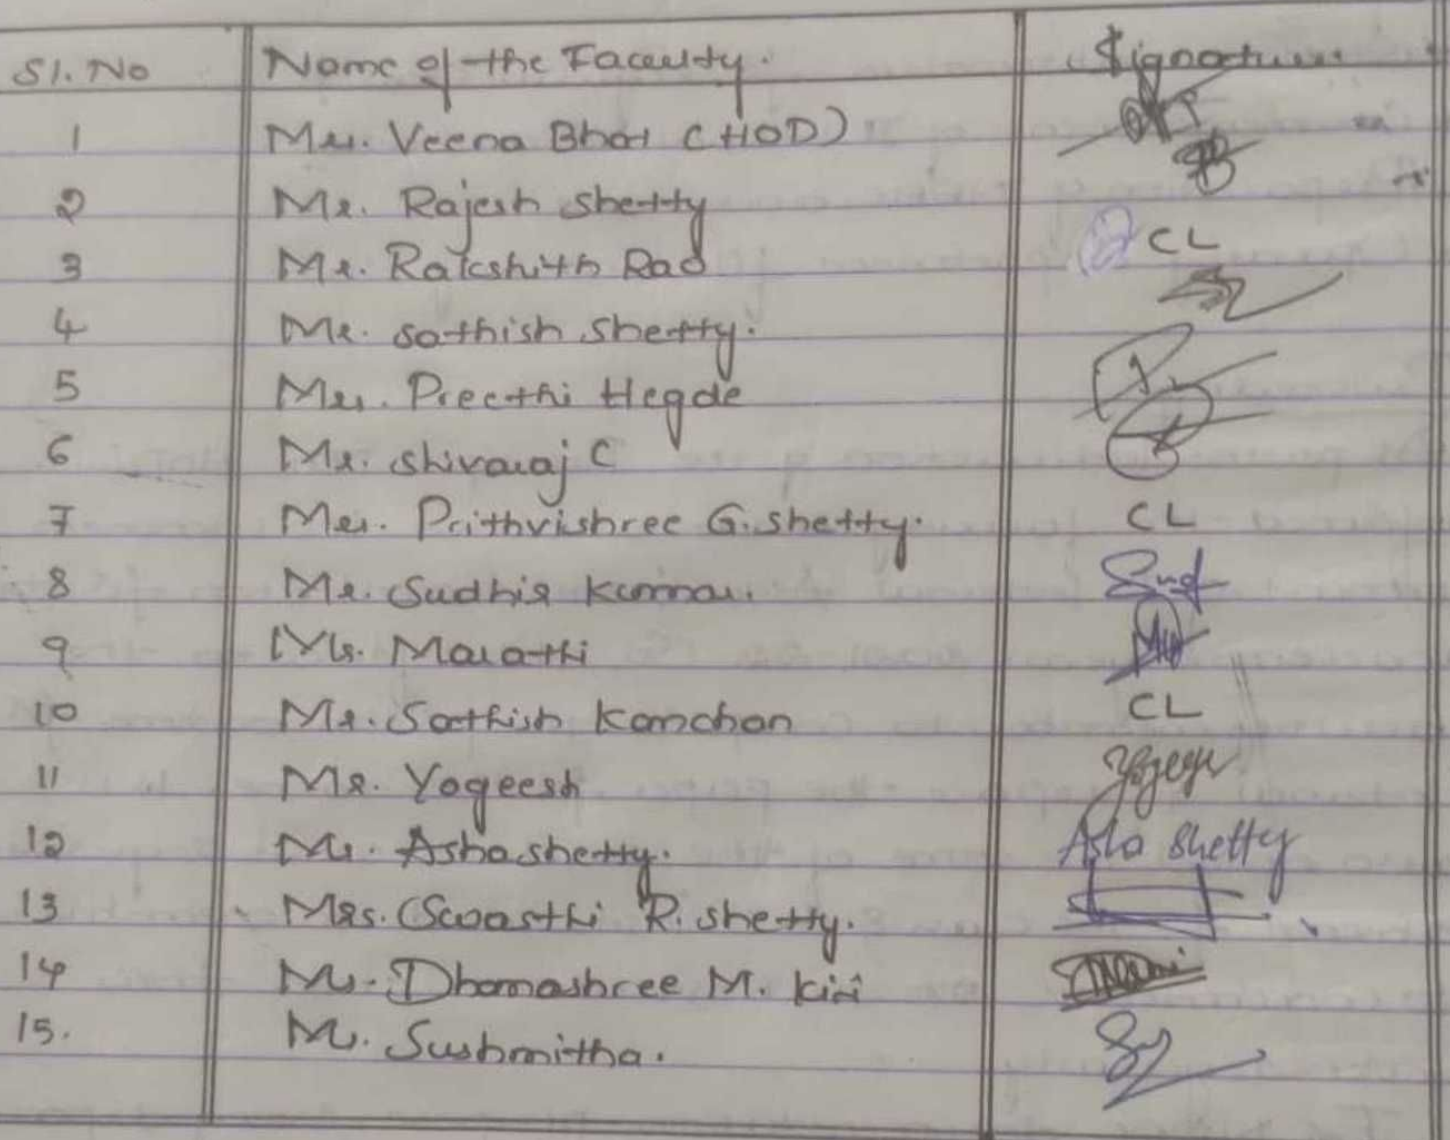 Sl. No Name of the Faculty. Signature
1 Mrs. Veena Bhat (HOD)
2 Mr. Rajesh Shetty
3 Mr. Rakshith Rao CL
4 Mr. Sathish Shetty.
5 Mrs. Preethi Hegde
6 Mr. Shivaraj C
7 Mrs. Prithvishree G. Shetty. CL
8 Mr. Sudhir Kumar.
9 Ms. Marathi
10 Mr. Sathish Kanchan CL
11 Mr. Yogeesh
12 Ms. Asha Shetty. Asha Shetty
13 Mrs. Swasthi R. Shetty.
14 Ms. Dhanashree M. Kini
15. Ms. Sushmitha.